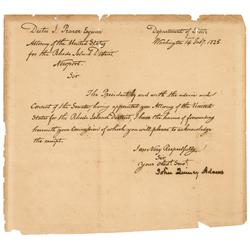 Dutee J. Pearce Esquire
Department of State
Attorney of the United States
Washington 14 Feby. 1825
for the Rhode Island District,
Newport.
Sir
The President by and with the advice and
Consent of the Senate having appointed you Attorney of the United
States for the Rhode Island District, I have the honor of forwarding
herewith your Commission of which you will please to acknowledge
the receipt.
I am Very Respectfully,
Sir
Your Obedt. Servt.
John Quincy Adams